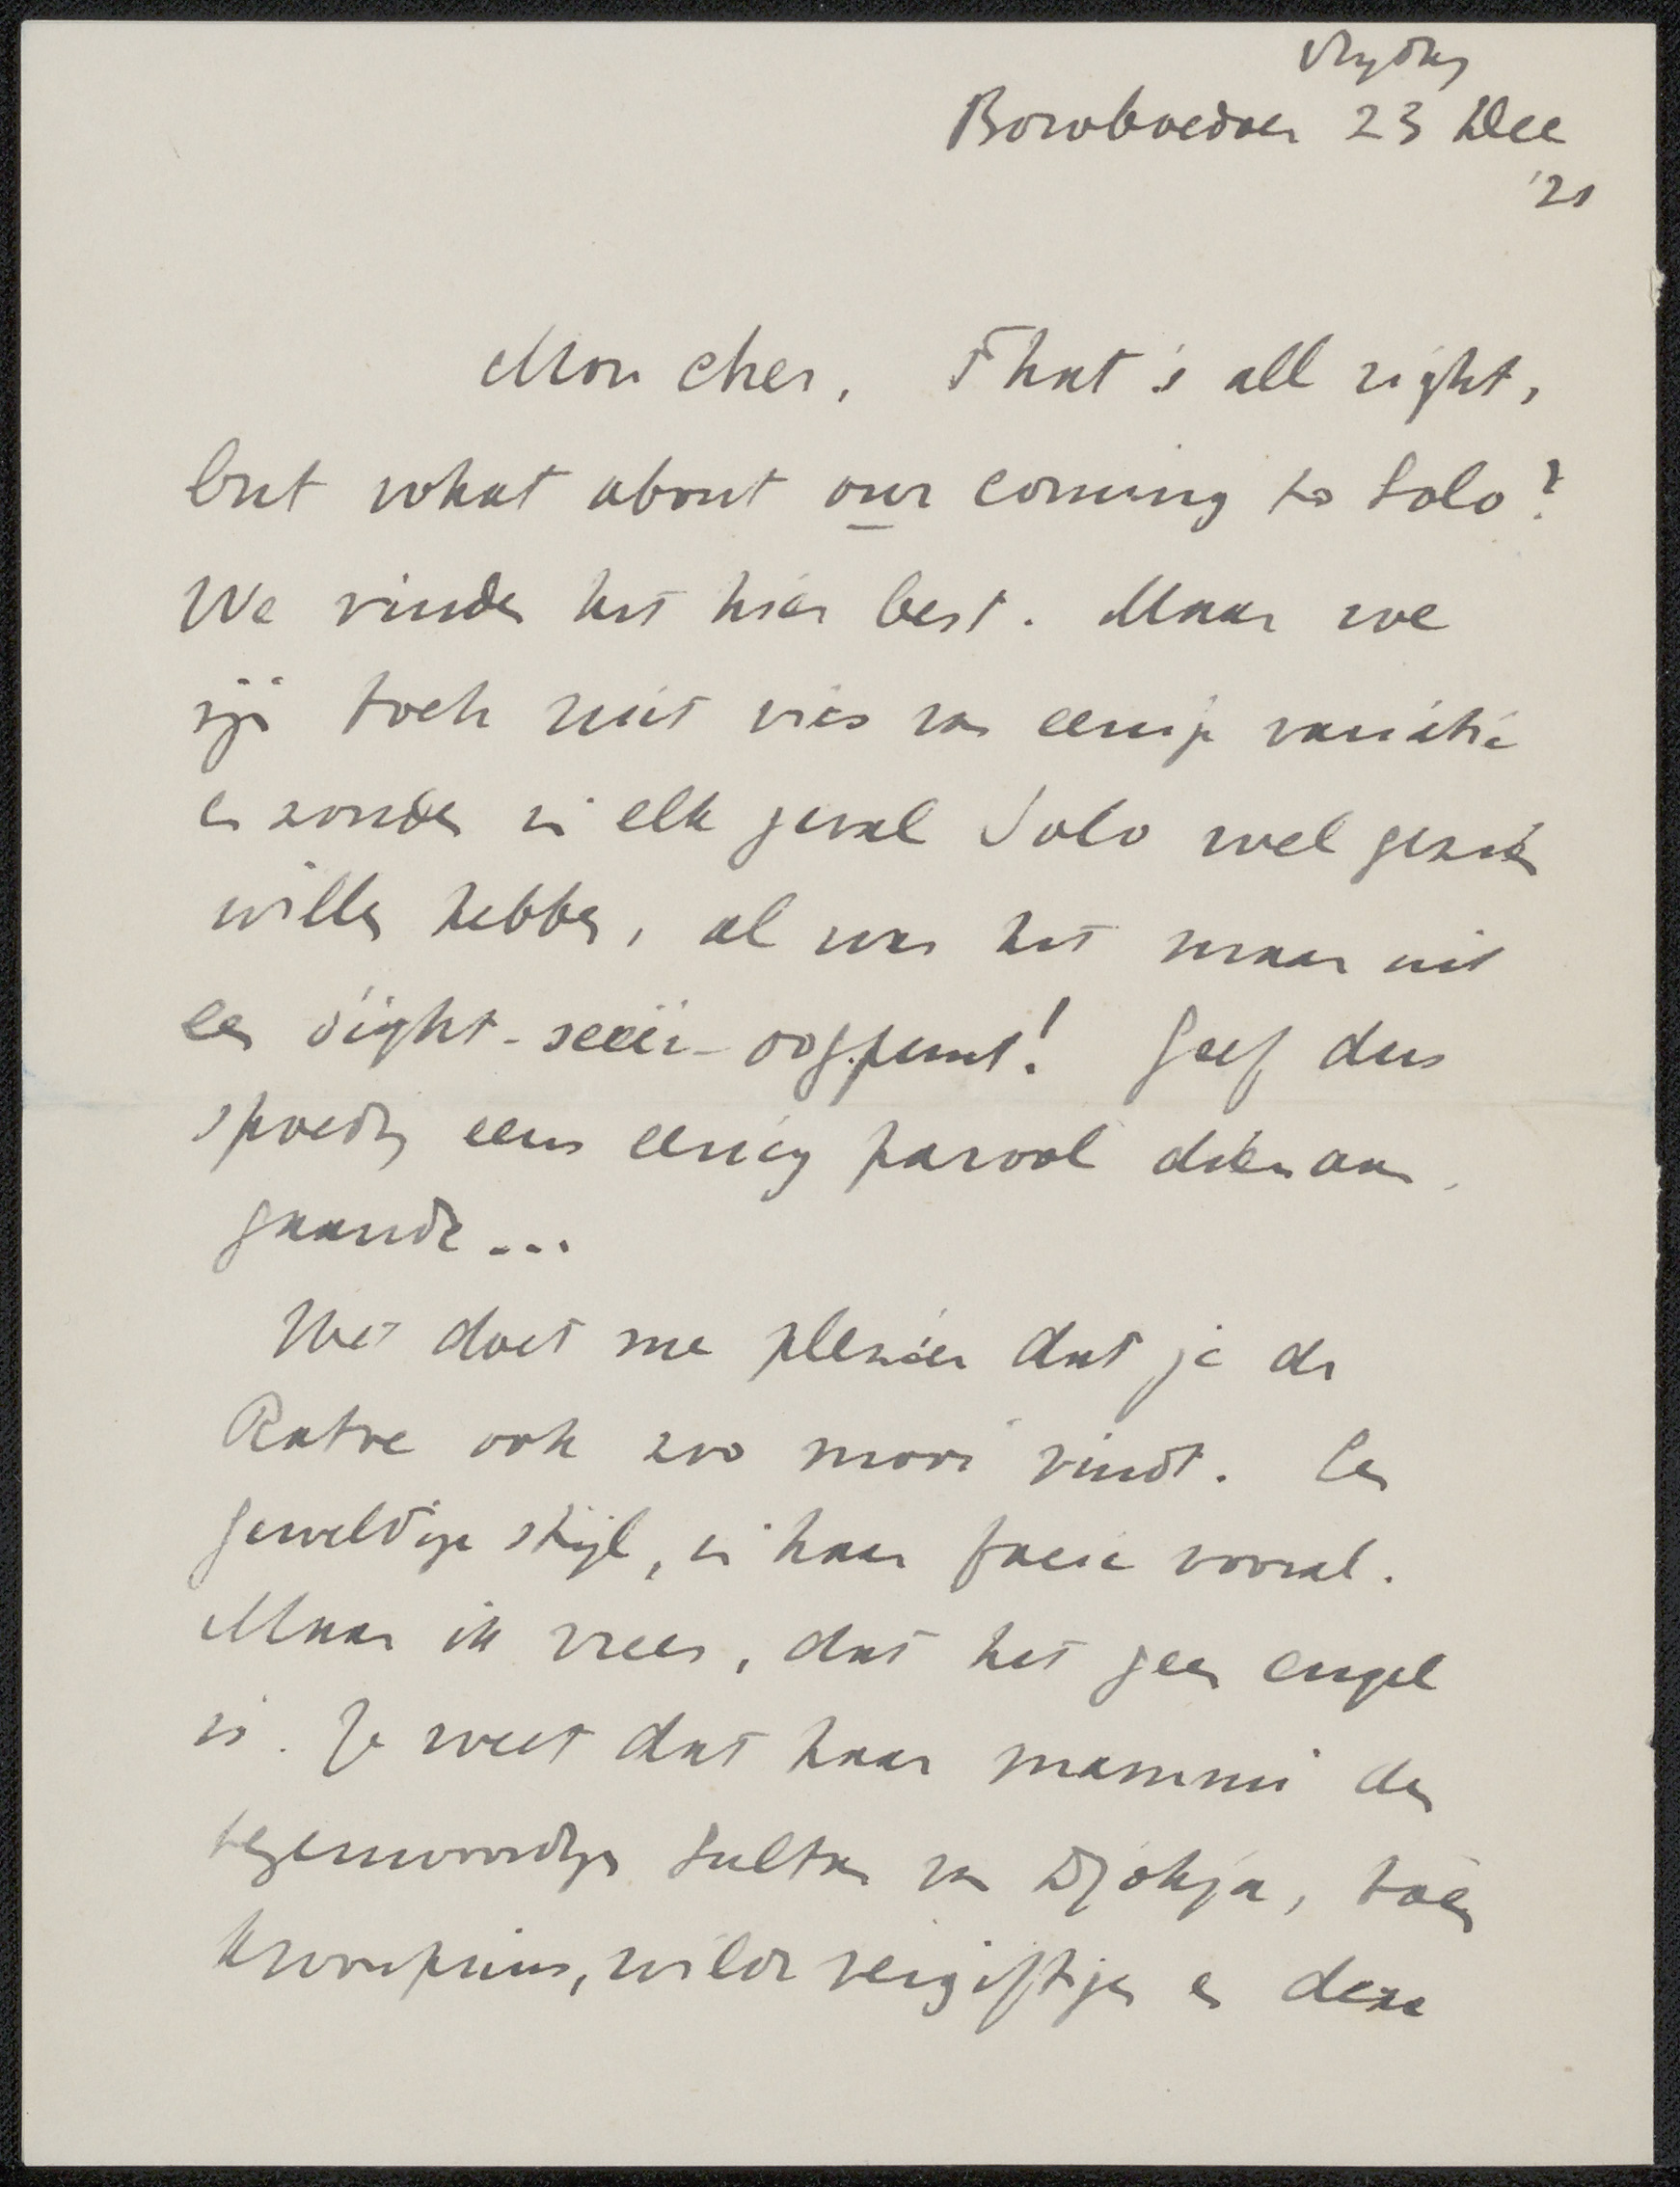 Vrijdag
Boroboedoer 23 Dec
'21
Mon cher, That's all right,
but what about our coming to Solo?
We vinden het hier best. Maar we
zijn toch niet vies van eenige variatie
en zouden in elk geval Solo wel gezien
willen hebben, al was het maar uit
een sight-seein-oogpunt! Geef dus
spoedig eens eenig parool dienaan-
gaande...
Het doet me plezier dat je de
Ratoe ook zoo mooi vindt. Een
geweldige stijl, in haar facie vooral.
Maar ik vrees, dat het geen engel
is. Je weet dat haar mammie den
tegenwoordigen Sultan van Djokja, toen
kroonprins, wilde vergiftigen en deze